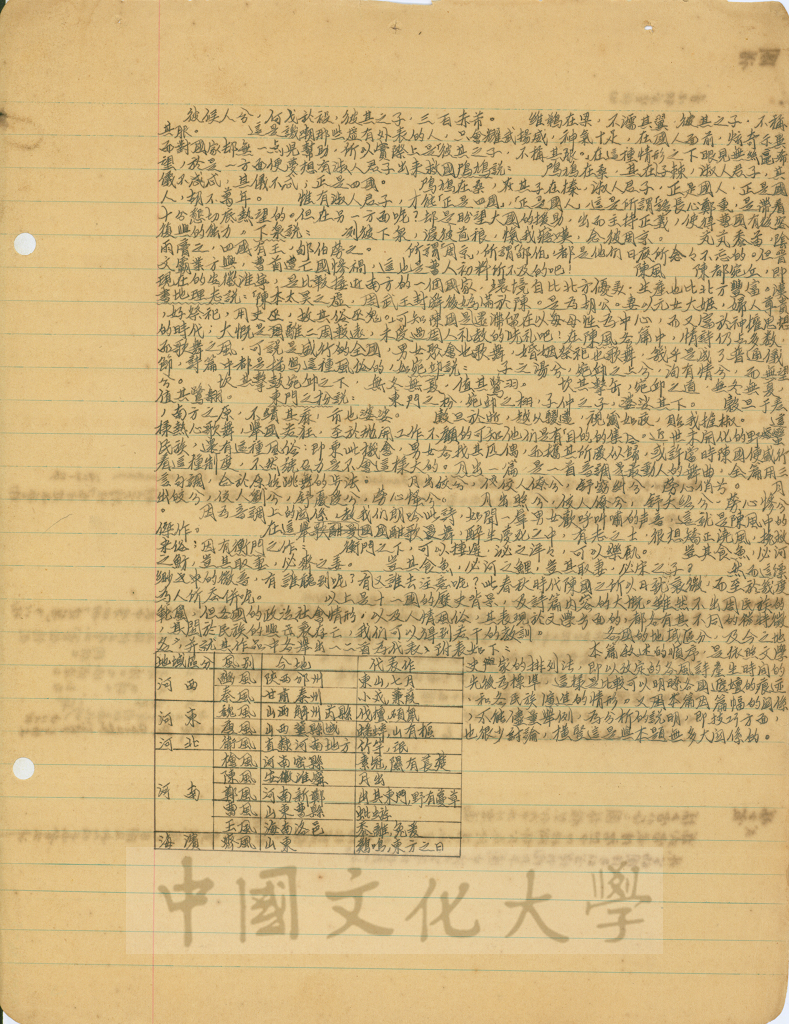 彼候人兮，何戈於祋，彼其之子，三百赤芾。 維鵜在梁，不濡其翼，彼其之子，不稱
其服。 這是譏嘲那些虛有外表的人，只會耀武揚威，神氣十足，在國人面前，
面對國家却無一點兒幫助，所以實際上是"彼其之子，不稱其服"。在這種情形之下眼見無
望，於是一方面便要想有淑人君子出來救國鳲鳩說： 鳲鳩在桑，其子在棘，淑人君子，其
儀不忒，其儀不忒，正是四國。 鳲鳩在桑，其子在榛，淑人君子，正是國人，正是國
人，胡不萬年。 惟有淑人君子，才能"正是四國"，"正是國人"
十分懇切底熱望的。但在另一方面呢？却是盼望大國的援助，出而主持正義，使得曹國有
復興的能力。下泉說： 冽彼下泉，浸彼苞稂，愾我寤嘆，念彼周京。 芃芃黍苗，陰
雨膏之，四國有王，郇伯勞之。 所謂周京，所謂郇伯，都是他們日夜所念々不忘的。但晉
文霸業方興，曹首遭亡國慘禍，這也是曹人初料所不及的吧！ 陳風 陳都宛丘，即
現在的安徽淮寧，是比較接近南方的一個國家，環境自比北方優美，生產也比北方豐富。漢
書地理志說："陳本太昊之虛，周武王封舜後媯滿於陳。是為胡公。妻以元女大姬，婦人尊貴
，好祭祀，用史巫，故其俗巫鬼。"可知陳國是還滯留在以每母性為中心，而又富於神權思想
的時代；大概是因離二周較遠，未受過周人礼教的洗礼吧！在陳風各篇中，情詩仍占多數，
而歌舞之風，可說是盛行的全國，男女聚會也歌舞，婚姻祭祀也歌舞，幾乎是成了普通儀
節，詩篇中都是描寫這種風俗的，如宛邱說： 子之湯兮，宛邱之上兮，洵有情兮，而無望
兮。 坎其擊鼓，宛邱之下，無冬無夏，值其鷺羽。 坎其擊缶，宛邱之道，無冬無夏，
值其鷺翿。 東門之枌說： 東門之枌，宛邱之栩，子仲之子，婆娑其下。 穀旦于差
，南方之原，不績其麻，市也婆娑。 穀旦於逝，越以鬷邁，視爾如荍，貽我握椒。 這
樣熱心歌舞，舉國若狂，至於拋開工作不顧的可知他們是有目的的集合。近世未開化的野蠻
民族，還有這種風俗：即乘此機會，男女各找其匹偶，
着這種制度，不然號召力是不會這樣大的。月出一篇 是一首音調是最動人的舞曲，全篇用三
言句調，合於原始跳舞的步法。 月出皎兮，佼人僚兮，舒窈糾兮，勞心悄兮。 月
出皓兮，佼人懰兮，舒慢受兮，勞心慅兮。 月出照兮，佼人燎兮，舒夭紹兮，勞心慘兮
。 因為音調上的關係，教我們朗吟此詩，如聞一聲男女歡呼叫嘯的聲音，這就是陳風中的
傑作。 在這舉國風靡歌靈舞，醉生夢死之中，有志之士，很想矯正流風，挽救
末俗；因有衡門之作： 衡門之下，可以棲遲，泌之洋々，可以樂飢。 豈其食魚，必河
之魴，豈其取妻，必齊之姜。 豈其食魚，必河之鯉，豈其取妻，必宋之子？ 然而這樣
微音，有誰聽到呢？有又誰去注意呢？此春秋時代陳國之所以日就衰微，而至於我後
為人所吞併呢。 以上是十一國的歷史背景，及詩篇內容的大概。雖然不出周民族的
範圍，但各國的政法社會情形，以及人情風俗，其表現於文學方面的，都各有其不同的
，其關於民族的興亡衰存亡，我們可以得到若干的教訓。 各國的地域區分，及今之地
名，并就其作品中各舉出一二首為代表，列表如下： 本篇敘述的順序，是依照文學
史學家的排列法，即以故定的各風詩產生時間的
先後為標準，這樣是比較可以明瞭各國遞壇的痕迹
，和各民族演進的情形。又因本篇因篇幅的關係
，不能儘量舉例，為分析的說明，即技巧方面，
也很少討論，橫豎這是與本題無多大關係的。
地域區分 風別 今地 代表作
河西 豳風 陝西邠州 東山，七月
秦風 甘肅秦州 小戎，蒹葭
河東 魏風 山西解州芮縣 伐檀，碩鼠
唐風 山西 蟋蟀，山有樞
河北 衛風 直隸河南地方 竹竿，氓
河南 檜風 河南密縣 素冠，隰有萇楚
陳風 安徽淮寧 月出
鄭風 河南新鄭 出其東門，野有蔓草
曹風 山東曹縣 蜉蝣
王風 海南洛邑 黍離，兔爰
海濱 齊風 山東 雞鳴，東方之日
中國文化大學